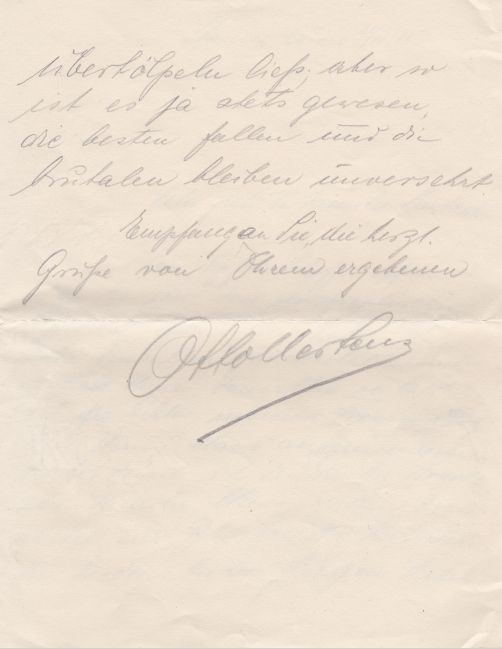 übertölpeln ließ; aber so
ist es ja stets gewesen,
die besten fallen und die
brutalen bleiben unversehrt.
Empfangen Sie, die herzl.
Grüße von Ihrem ergebenen
Otto Mertens